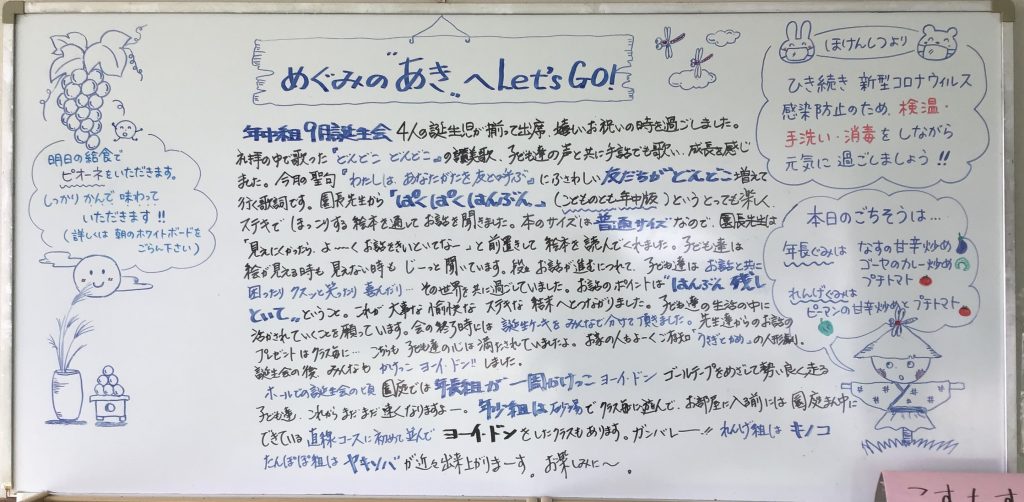 めぐみの"あき"へLet's GO!
年中組9月誕生会 4人の誕生児が揃って出席、嬉しいお祝いの時を過ごしました。
礼拝の中で歌った『どんどこ どんどこ』の讃美歌、子ども達の声と共に手話でも歌い、成長を感じ
ました。今月の聖句『わたしは、あなたがたを友と呼ぶ』にふさわしい友だちがどんどこ増えて
行く歌詞です。園長先生から『ぱくぱくはんぶん』(こどものとも年中版)というとっても楽しく
ステキでほっこりする絵本を通してお話を聞きました。本のサイズは普通サイズなので、園長先生は
「見えにくかったら、よ〜〜くお話をきいといてな〜」と前置きして絵本を読んでくれました。子ども達は
絵が見える時も見えない時もじーっと聞いています。段々お話が進むにつれて、子ども達はお話と共に
困ったりクスッと笑ったり喜んだり…その世界を共に過ごしていました。お話のポイントは"はんぶん残し
といて"ということ。これが大事な愉快なステキな結末へとつながりました。子ども達の生活の中に
活かされていくことを願っています。会の終了時には誕生ケーキをみんなで分けて頂きました。先生達からのお話の
プレゼントはクラス毎に…こちらも子ども達の心は満たされていましたよ。お家の人もよーくご存知「うさぎとかめ」の人形劇。
誕生会の後、みんなもかけっこヨーイ・ドン!!しました。
ホールでの誕生会のころ園庭では年長組が一周かけっこヨーイ・ドン ゴールテープをめざして勢い良く走る
子ども達、これからまだまだ速くなりますよー。年少組は砂場でクラス毎に遊んで、お部屋に入る前には園庭まん中に
できている直線コースに初めて並んでヨーイ・ドンをしたクラスもあります。ガンバレー!! れんげ組はキノコ
たんぽぽ組はヤキソバが近々出来上がりまーす。お楽しみに〜。
明日の給食で
ピオーネをいただきます。
しっかりかんで味わって
いただきます!!
(詳しくは朝のホワイトボードを
ごらん下さい)
ほけんしつより
ひき続き 新型コロナウィルス
感染防止のため、検温・
手洗い・消毒をしながら
元気に過ごしましょう!!
本日のごちそうは…
年長ぐみは なすの甘辛炒め
ゴーヤのカレー炒め
プチトマト
れんげぐみは
ピーマンの甘辛炒めとプチトマト